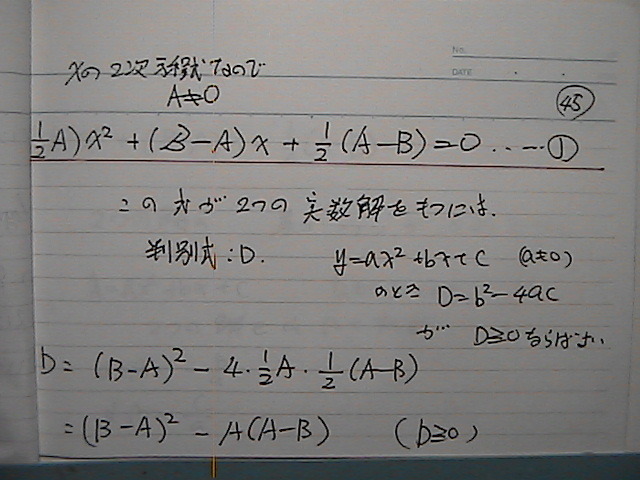 No.
DATE
xの2次方程式なので
A≠0
㊺
½A)x² + (B−A)x + ½(A−B)=0 ……①
この式が2つの実数解をもつには.
判別式:D. y=ax²+bx+c (a≠0)
のとき D=b²−4ac
が D≥0ならばよい
D= (B−A)² − 4・½A・½(A−B)
=(B−A)² − A(A−B) (D≥0)